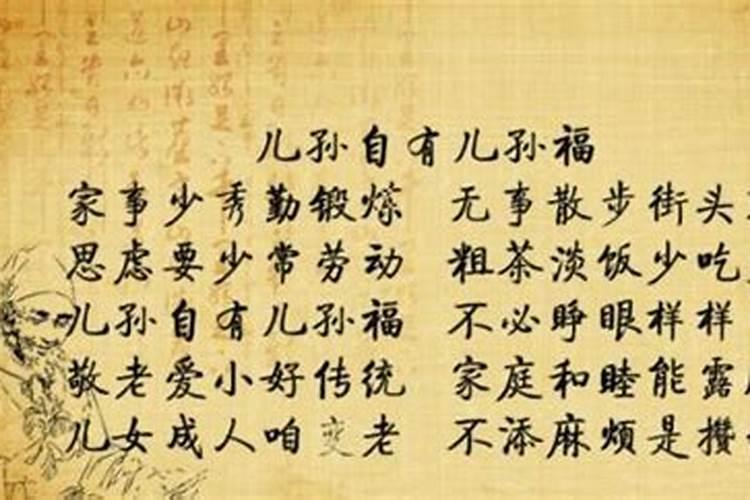 儿孙自有儿孙福
家事少秀勤锻炼 无事散步街头
思虑要少常劳动 粗茶淡饭少吃
儿孙自有儿孙福 不必睁眼样样
敬老爱小好传统 家庭和睦能露
儿女成人咱变老 不添麻烦是攒